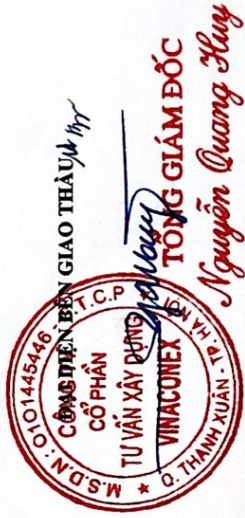 ĐẠI DIỆN BÊN GIAO THẦU
M.S.D.N: 0101445446 - C.T.C.P
CÔNG TY
CỔ PHẦN
TƯ VẤN XÂY DỰNG
VINACONEX
Q. THANH XUÂN - TP. HÀ NỘI
TỔNG GIÁM ĐỐC
Nguyễn Quang Huy